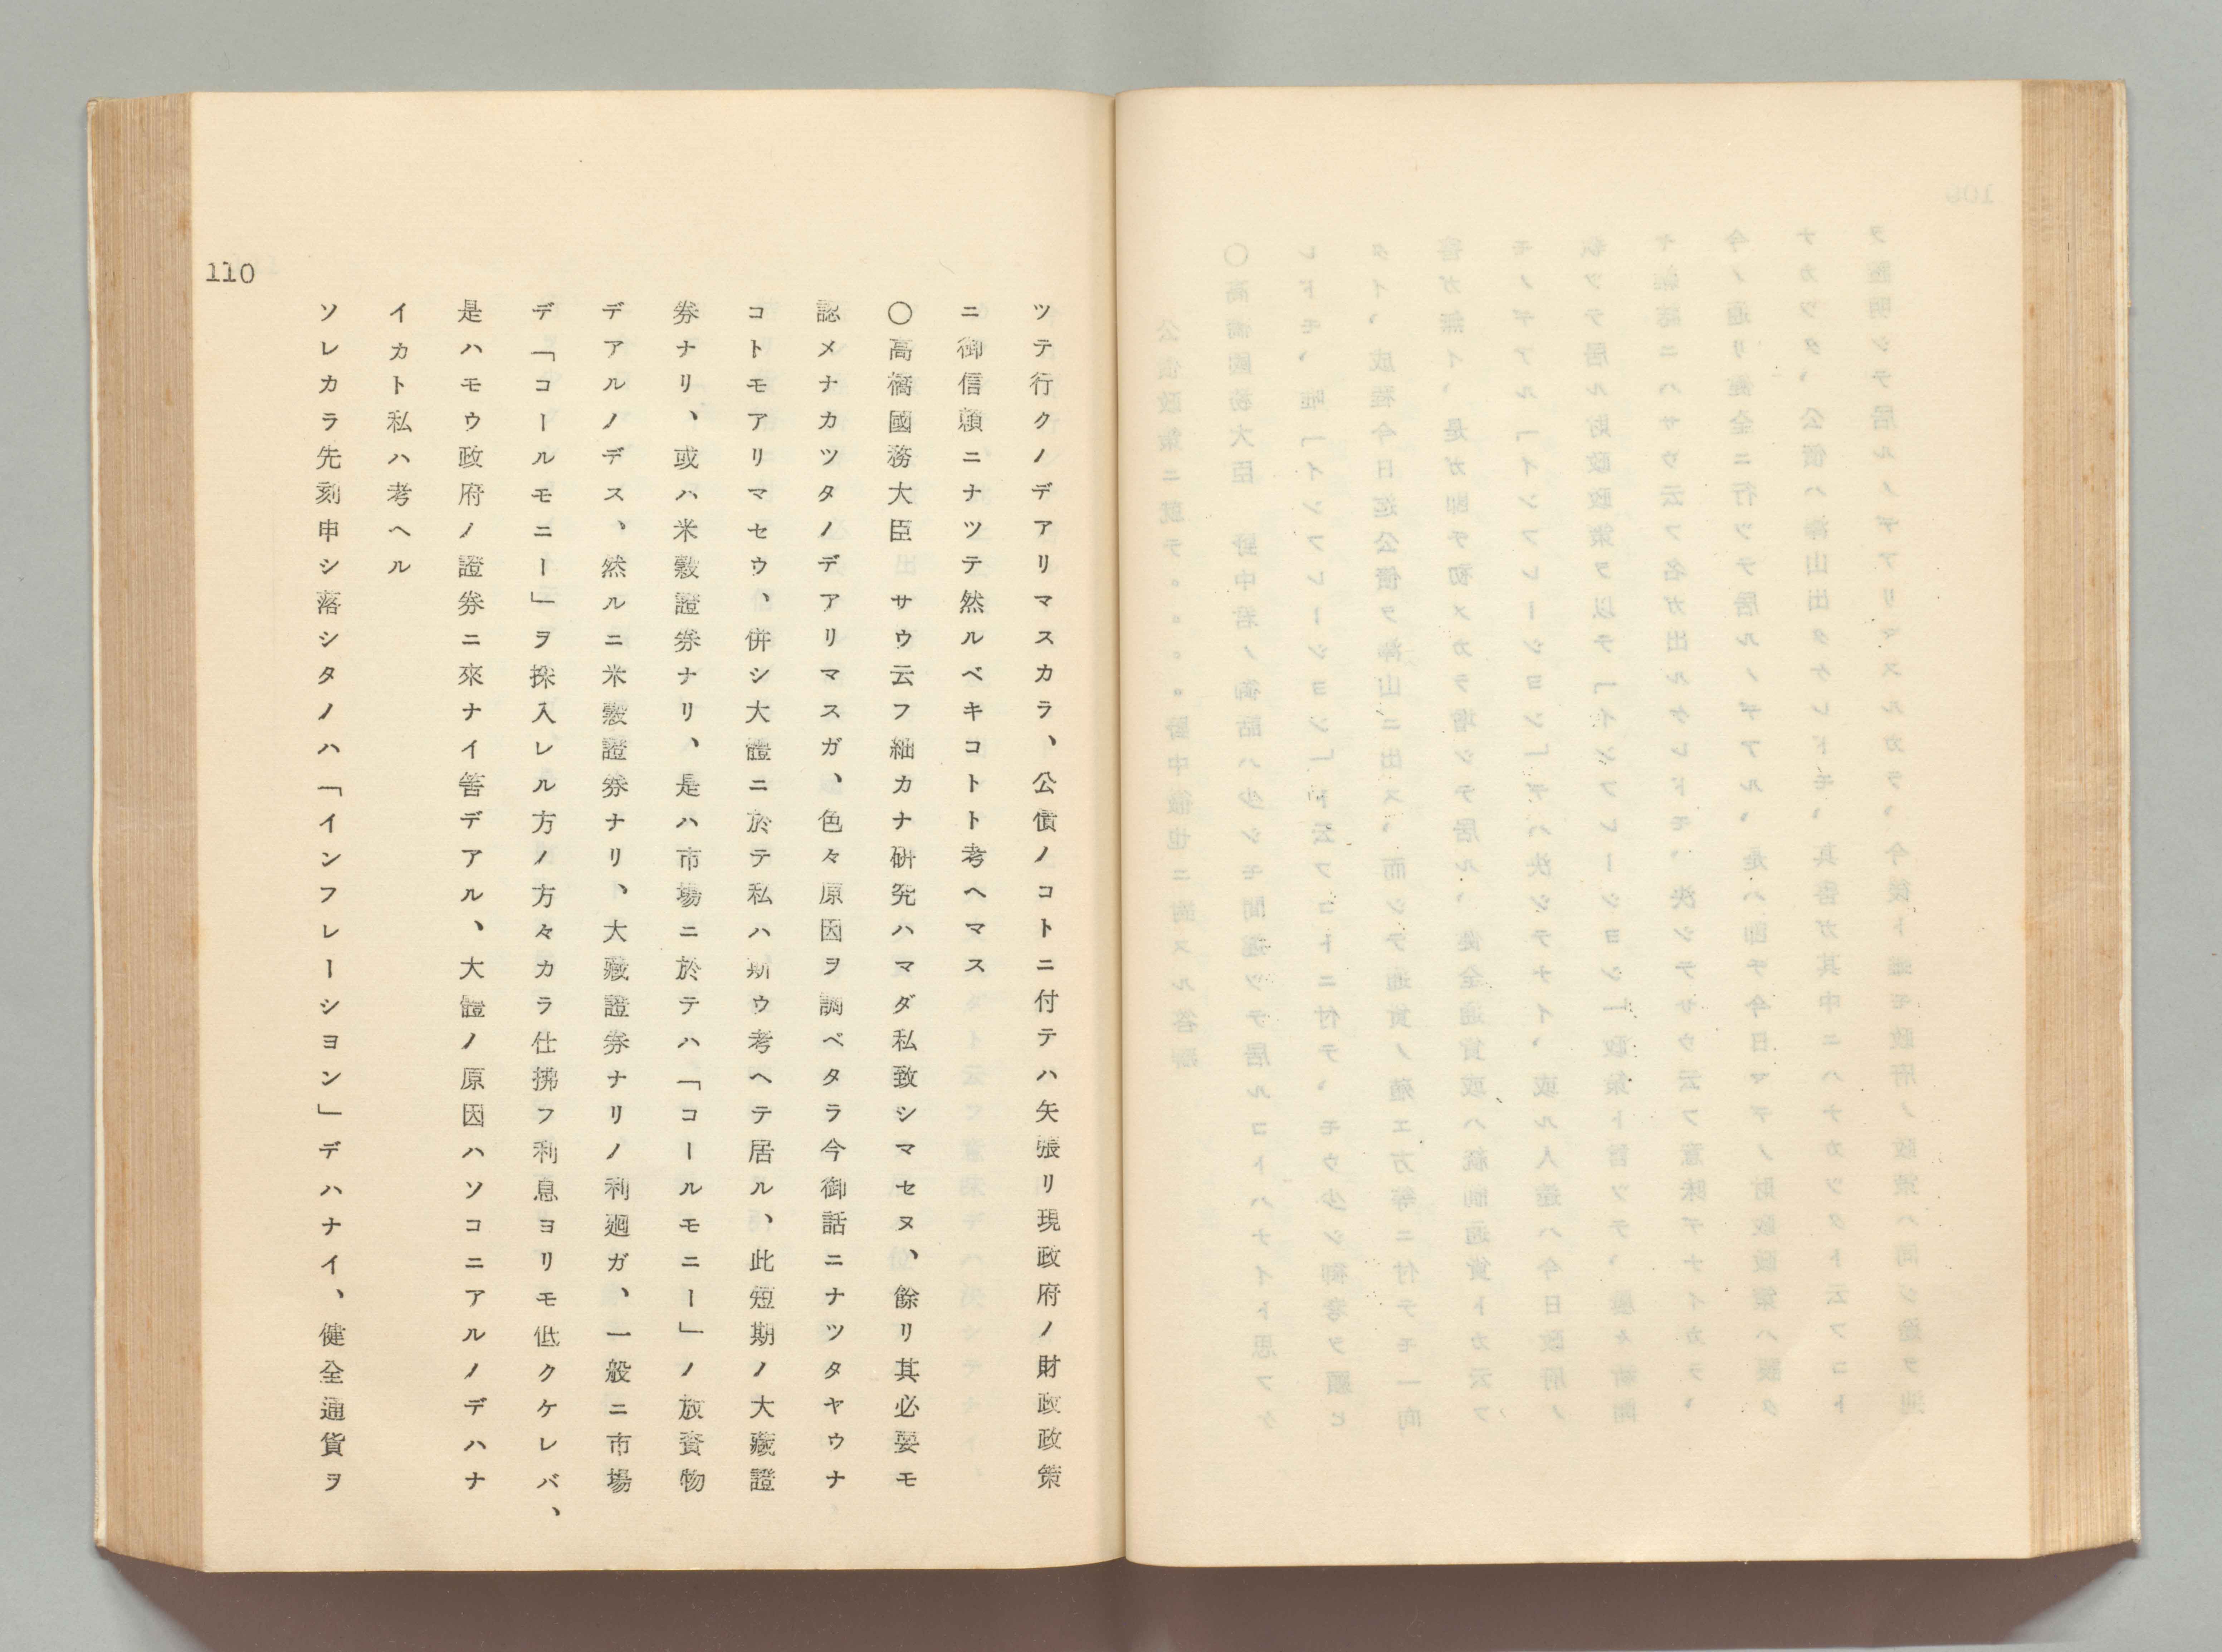 ツテ行クノデアリマスカラ、公債ノコトニ付テハ矢張リ現政府ノ財政政策
ニ御信頼ニナツテ然ルベキコトト考ヘマス
〇高橋國務大臣　サウ云フ細カナ研究ハマダ私致シマセヌ、餘リ其必要モ
認メナカツタノデアリマスガ、色々原因ヲ調ベタラ今御話ニナツタヤウナ
コトモアリマセウ、併シ大體ニ於テ私ハ斯ウ考ヘテ居ル、此短期ノ大藏證
券ナリ、或ハ米穀證券ナリ、是ハ市場ニ於テハ「コールモニー」ノ放資物
デアルノデス、然ルニ米穀證券ナリ、大藏證券ナリノ利廻ガ、一般ニ市場
デ「コールモニー」ヲ採入レル方ノ方々カラ仕拂フ利息ヨリモ低クケレバ、
是ハモウ政府ノ證券ニ來ナイ筈デアル、大體ノ原因ハソコニアルノデハナ
イカト私ハ考ヘル
ソレカラ先刻申シ落シタノハ「インフレーシヨン」デハナイ、健全通貨ヲ
110